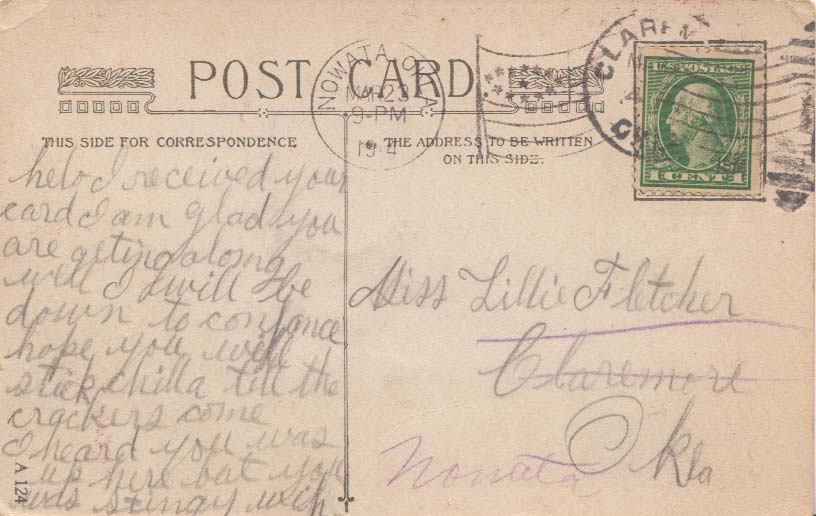 POST CARD
NOWATA OKLA.
MAR 23
9-PM
1914
CLAREM
U.S. POSTAGE
1 CENT 1
THIS SIDE FOR CORRESPONDENCE
THE ADDRESS TO BE WRITTEN
ON THIS SIDE.
helo I received your
card I am glad you
are geting along
well I will be
down to confance
hope you will
stick chilla till the
crackers come
I heard you was
up here but you
was stingy with
Miss Lillie Fletcher
Claremore
Okla
Nowata
A 124